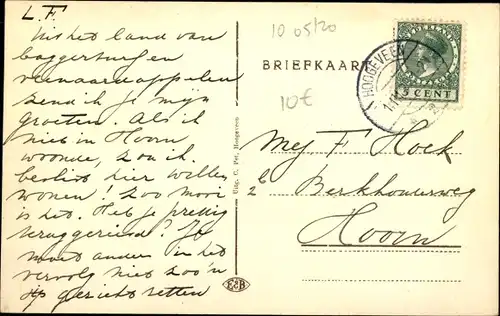 L. F.
Uit het land van
baggerturf en
veenaardappelen
zend ik je mijn
groeten. Als ik
niet in Hoorn
woonde, zou ik
beslist hier willen
wonen! Zoo mooi
is het. Heb je prettig
teruggereisd? Je
moet anders in het
vervolg niet zoo'n
gezicht zetten
Uitg. C. Pet, Hoogeveen
10 05/20
BRIEFKAART
10€
HOOGEVEEN
NEDERLAND
5 CENT
Mej F Hoek
Berkhouterweg
2b
Hoorn